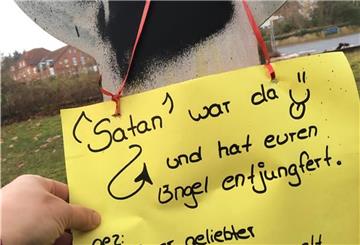 "Satan" war da
und hat euren
Engel entjungfert.
gez:
geliebter